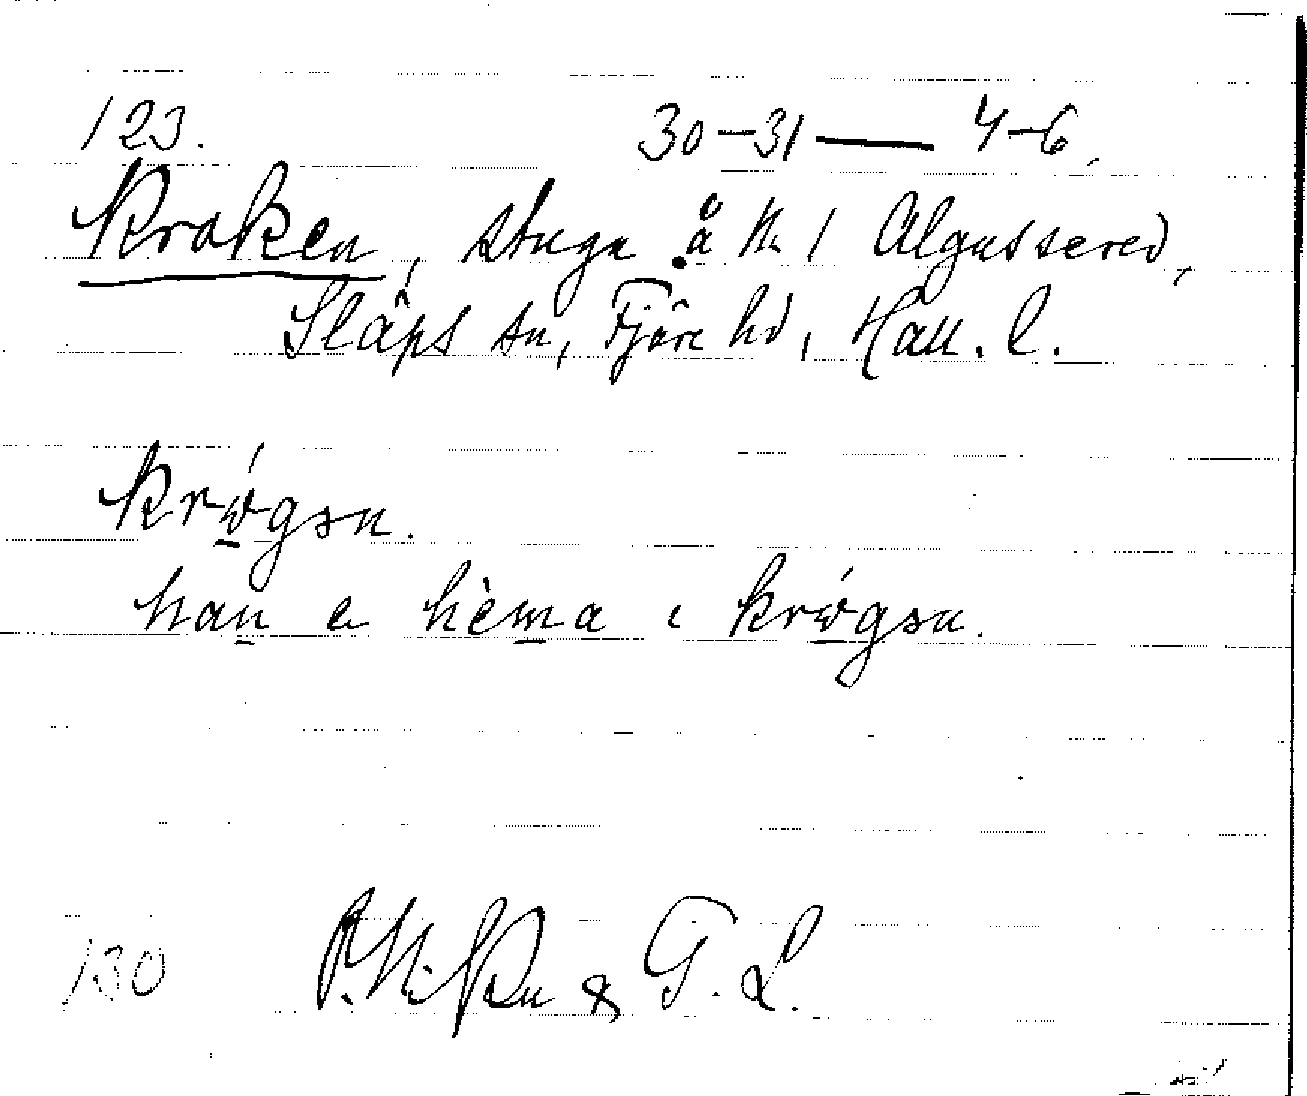 123. 30–31 — 4–6.
Kroken, stuga å № 1 Algussered,
Släps sn, Fjäre hd, Hall. l.
krógən.
han e hèma i krógən.
130 & G. L.